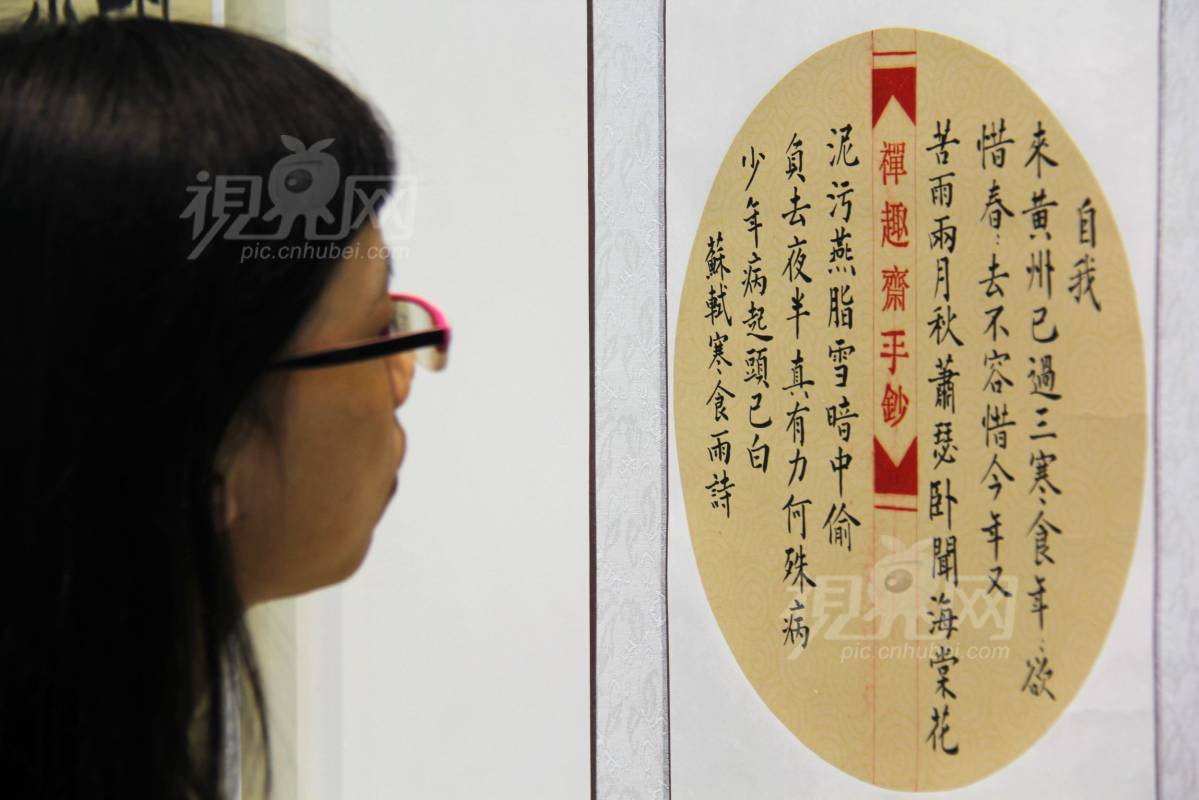 自我
來黃州已過三寒食年〻欲
惜春〻去不容惜今年又
苦雨兩月秋蕭瑟卧聞海棠花
禪趣齋手鈔
泥污燕脂雪暗中偷
負去夜半真有力何殊病
少年病起頭已白
蘇軾寒食雨詩
視界网
pic.cnhubei.com
視界网
pic.cnhubei.com